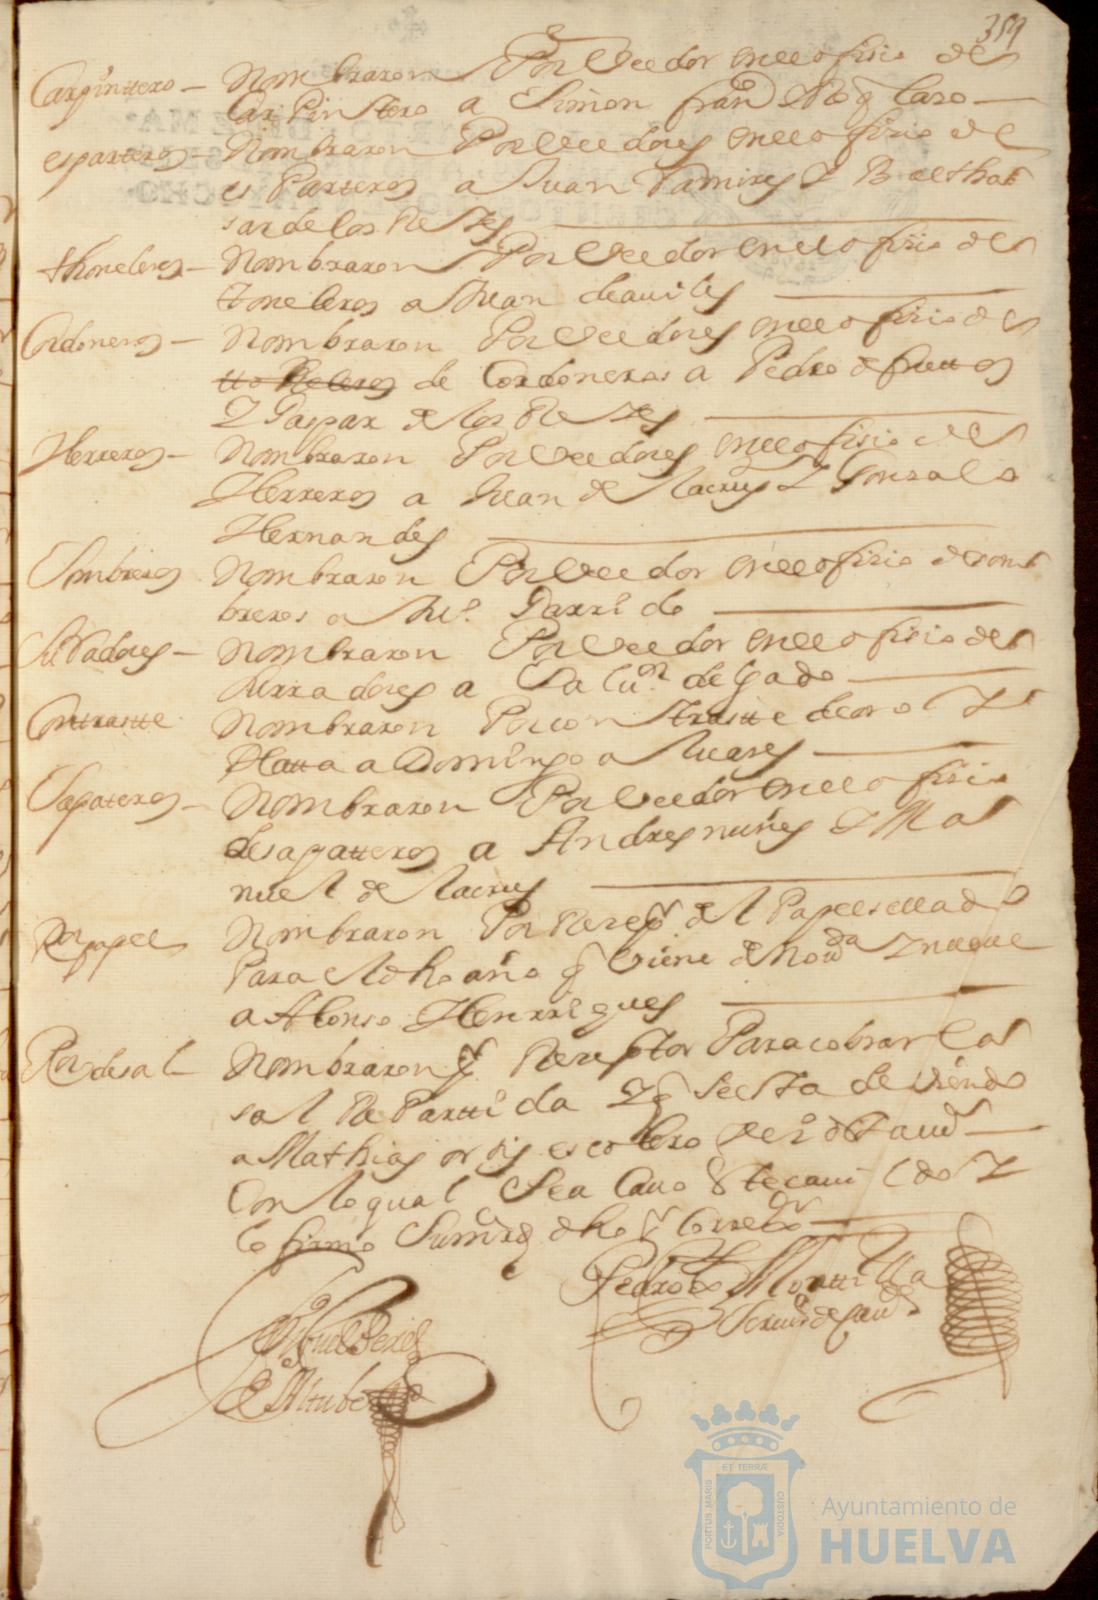 359
Carpinttero — Nombraron Por Veedor en el ofisio de
Carpintero a Simon fran.co
esparteros — Nombraron Por Veedores en el ofisio de
es Parteros a Juan Ramires Y Balthas
sar de los Reyes
thoneleros — Nombraron Por Veedor en el ofisio de
toneleros a Juan de auiles
Cordoneros — Nombraron Por Veedores en el ofisio de
de Cordoneros a Pedro de fruttos
Y Gaspar de los Reyes
Herreros — Nombraron Por Veedores en el ofisio de
Herreros a Juan de la crus Y Gonsalo
Hernandes
Sombreros Nombraron Por Veedor en el ofisio de som
breros a Ju.o Garrido
Surradores — Nombraron Por Veedor en el ofisio de
surradores a delgado
Contraste Nombraron Por contraste de oro Y
Platta a Domingo Suares
Sapateros — Nombraron Por Veedor en el ofisio
de sapatteros a Andres nuñes Y Ma
nuel de la crus
Por papel Nombraron Por Resep.r del Papel sellado
Para el dho año q viene de nou.ta Y nueue
a Alonso Henrriques
Por de sal Nombraron p.r Reseptor Para cobrar la
sal Repartida Y q se esta deuiendo
a Mathias ortis escolero
Con lo qual Sea Cauo este cauildo Y
lo firmo Su mrd dho s.r Corre.dor
Miguel Peres
de Altube
Pedro de Montilla
Scriu.o de cau.do
PORTUS MARIS
ET TERRÆ
CUSTODIA
Ayuntamiento de
HUELVA